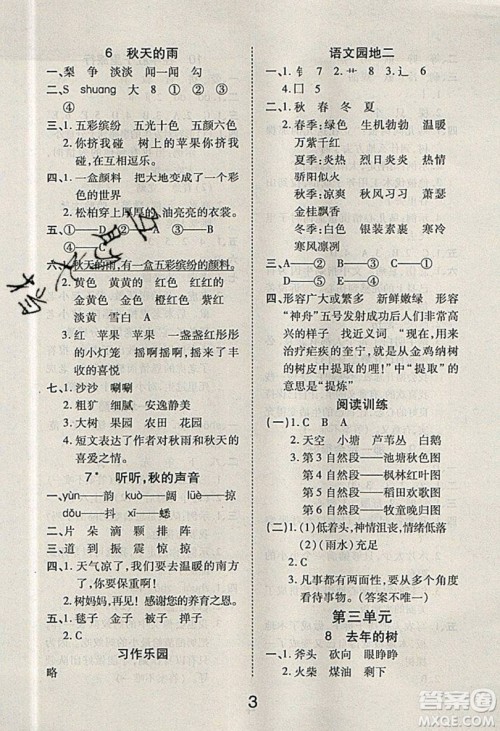 6 秋天的雨
一、梨 争 淡淡 闻一闻 勾
二、S shuang 大 8 ① ② ③
④
三、1. 五彩缤纷 五光十色 五颜六色
2. 你挤我碰 树上的苹果你挤我
碰
四、1. 一盒颜料 把大地变成了一个彩
色的世界
2. 松柏穿上厚厚的、油亮亮的衣裳。
五、①——D ②——A ③——B
④——C
六、1. 秋天的雨,有一盒五彩缤纷的颜料。
2. 黄色 黄黄的 红色 红红的
金黄色 金黄的 橙红色 橙红的
淡黄 雪白
3. 红 苹果 一盏盏红彤彤
的小灯笼 摇啊摇啊 丰收
的喜悦
七、1. 沙沙 唰唰
2. 粗犷 细腻 安逸静美
3. 大树 果园 农田 花园
4. 短文表达了作者对秋雨和秋天的
喜爱之情。
7* 听听,秋的声音
一、yùn——韵 kuò——阔 lüè——掠
dǒu——抖 xī——蟋
二、片 朵 滴 颗 排 阵
三、道 到 振 震 惊 掠
四、1. 天气凉了,我们要去温暖的南方
了,你自己保重。
2. 树妈妈,再见,感谢您的养育之恩。
五、毯子 子 金子 被子 子
习作乐园
略
语文园地二
一、1. 钅 7 8 2. 灬 8 3. 辶 6
4. 囗 5
二、1. 秋 春 冬 夏
2. 春季:绿色 生机勃勃 温暖
万紫千红
夏季:炎热 热情 热烈
骄阳似火
秋季:凉爽 秋风习习 萧瑟
金桂飘香
冬季:白色 银装素裹 寒冷
寒风凛冽
三、④ ① ⑤ ② ③
四、形容广大或繁多 新鲜嫩绿 形容
“神舟”五号发射成功后人们非常
高兴的样子 找近义词 “现在,用来
治疗疟疾的奎宁,就是从金鸡纳树
的树皮中提取的哩!”中“提取”的
意思是“提炼”
阅读训练
(一)1. C B A
2. 天空 小塘 芦苇丛 白鹅
3. 第1自然段——池塘秋色图
第4自然段——枫林红叶图
第5自然段——稻田欢歌图
第6自然段——牧童晚归图
(二)1. (1)低着头,神情沮丧,情绪低落
(2)(雨水)充足
2. C A
3. 凡事都有两面性,要从不同的方面
看待事情。(答案不唯一)
第三单元
8 去年的树
一、斧头 砍向 融化 煤油灯
2. 火柴 煤油 剩下
3
答案圈
MXQE.COM